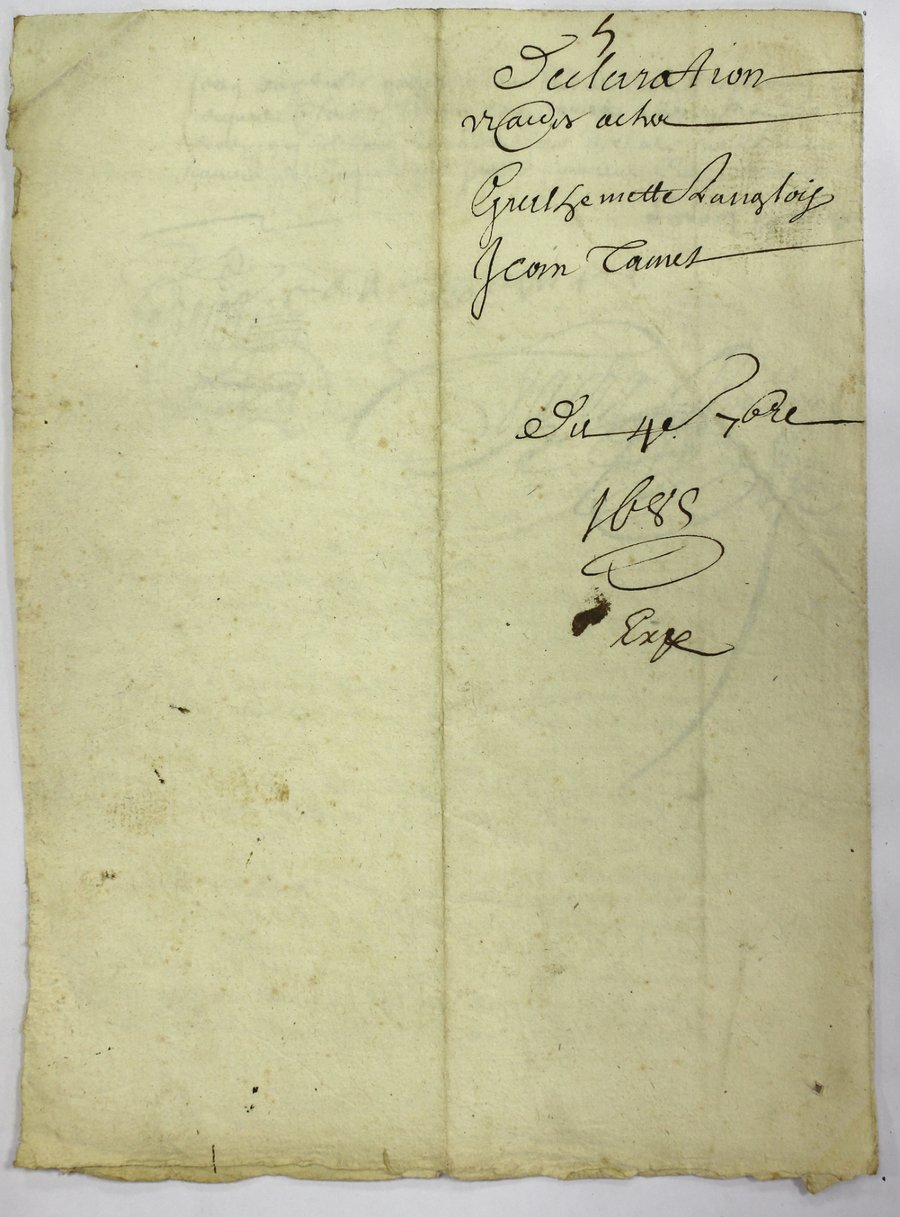 Declaration
Guilhemette Langlois
Jean Tamet
Du 4e 7bre
1685
Exp